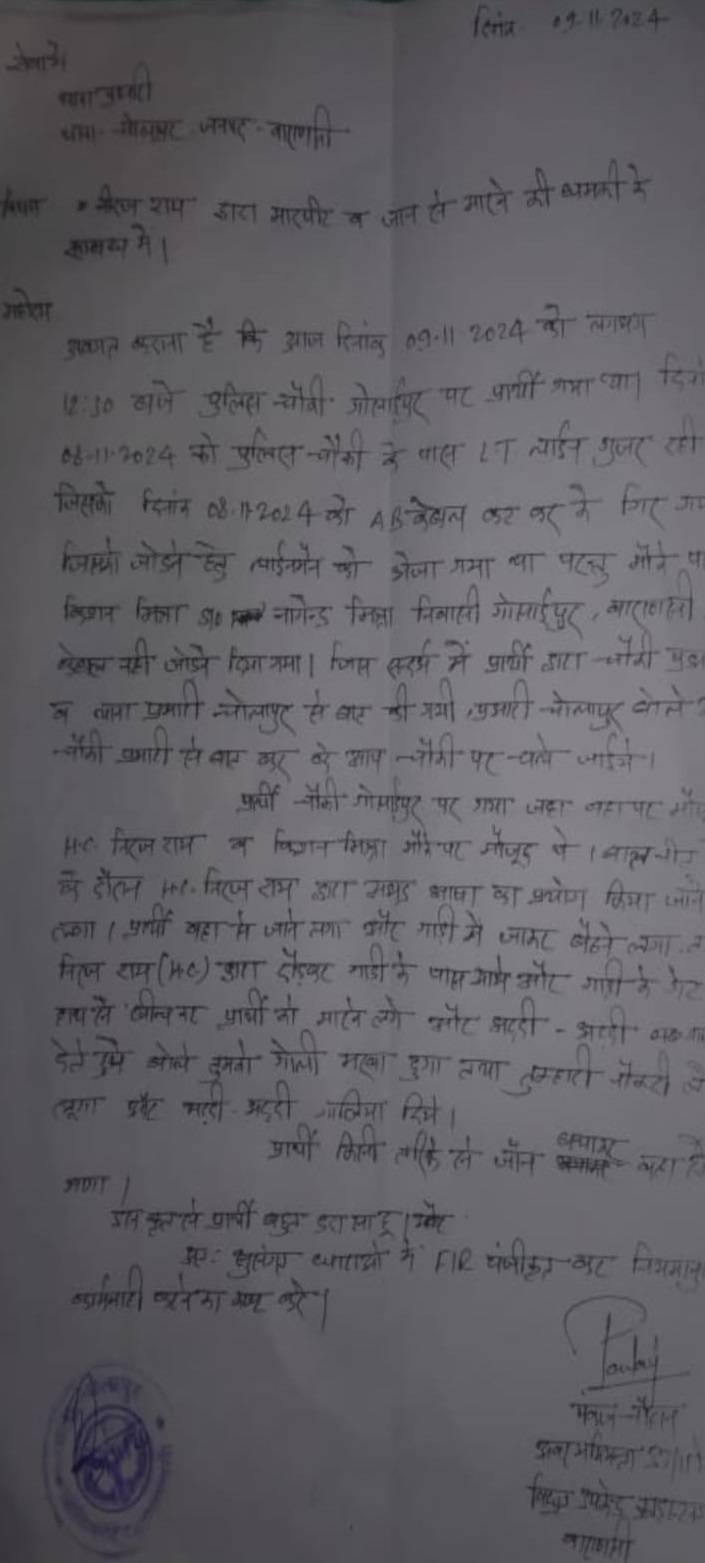 दिनांक 09-11-2024
सेवा में
थाना प्रभारी
थाना - चोलापुर जनपद - वाराणसी
विषय - नीरज राय द्वारा मारपीट व जान से मारने की धमकी के
सम्बन्ध में।
महोदय
अवगत कराना है कि आज दिनांक 09-11 2024 को लगभग
12:30 बजे पुलिस चौकी गोसाईपुर पर प्रार्थी गया था।
08-11-2024 को पुलिस चौकी के पास LT लाईन गुजर रही
जिसको दिनांक 08-11-2024 को AB केबल कट कर के गिर
जिसको जोडने हेतु लाईनमैन को भेजा गया था परन्तु मौके
किशन मिश्रा S/o नागेन्द्र मिश्रा निवासी गोसाईपुर, वाराणसी
केबल नही जोडने दिया गया। जिस सन्दर्भ में प्रार्थी द्वारा चौकी
व थाना प्रभारी चोलापुर से बात की गयी, प्रभारी चोलापुर बोले
चौकी प्रभारी से बात कर के आप चौकी पर चले जाईये।
प्रार्थी चौकी गोसाईपुर पर गया जहा वहा पर
H.C. निरज राय व किशन मिश्रा मौके पर मौजूद थे।
के दौरान H.C. निरज राय द्वारा अभद्र भाषा का प्रयोग किया जाने
लगा। प्रार्थी वहा से जाने लगा और गाडी में जाकर बैठने लगा
निरज राय (H.C) द्वारा दौड़कर गाडी के पास आये और गाडी के गेट
प्रार्थी को मारने लगे और भद्दी - भद्दी
देते हुये बोले तुमको गोली मरवा दुगा तथा तुम्हारी नौकरी
लूगा और भद्दी भद्दी गालिया दिये।
प्रार्थी किसी तरिके से जॉन बचाकर वहा
गया।
इस कृत्य से प्रार्थी बहुत डरा सा हू।
अतः सुसंगत धाराओ में FIR पंजीकृत कर
कार्यवाही करने का कष्ट करे।
वाराणसी